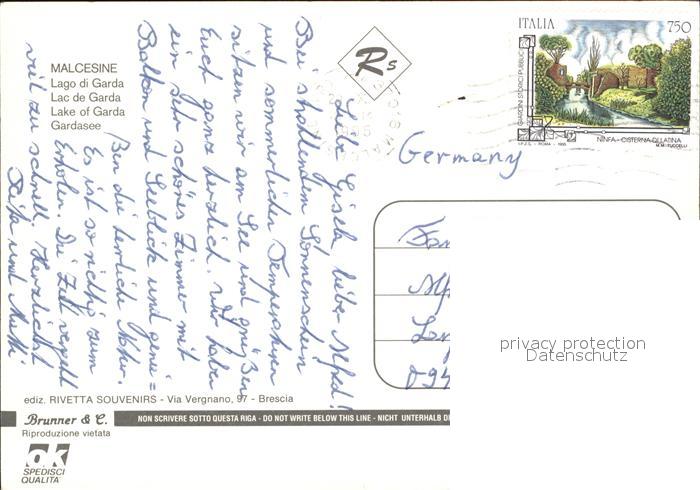 MALCESINE
Lago di Garda
Lac de Garda
Lake of Garda
Gardasee
Rs
ITALIA 750
GIARDINI STORICI PUBBLICI
NINFA - CISTERNA DI LATINA
I.P.Z.S. - ROMA - 1995
M.M. TUCCELLI
Germany
Liebe Gisela, lieber Alfred!
Bei strahlendem Sonnenschein
und sommerlichen Temperaturen
sitzen wir am See und grüßen
Euch ganz herzlich. Wir haben
ein sehr schönes Zimmer mit
Balkon und Seeblick und genie=
ßen die herrliche Natur.
Es ist so richtig zum
Erholen. Die Zeit vergeht
viel zu schnell. Herzlichst
und
Fam
Alf
094
privacy protection
Datenschutz
ediz. RIVETTA SOUVENIRS - Via Vergnano, 97 - Brescia
Brunner & C.
NON SCRIVERE SOTTO QUESTA RIGA - DO NOT WRITE BELOW THIS LINE - NICHT UNTERHALB DI
Riproduzione vietata
ok
SPEDISCI
QUALITA'